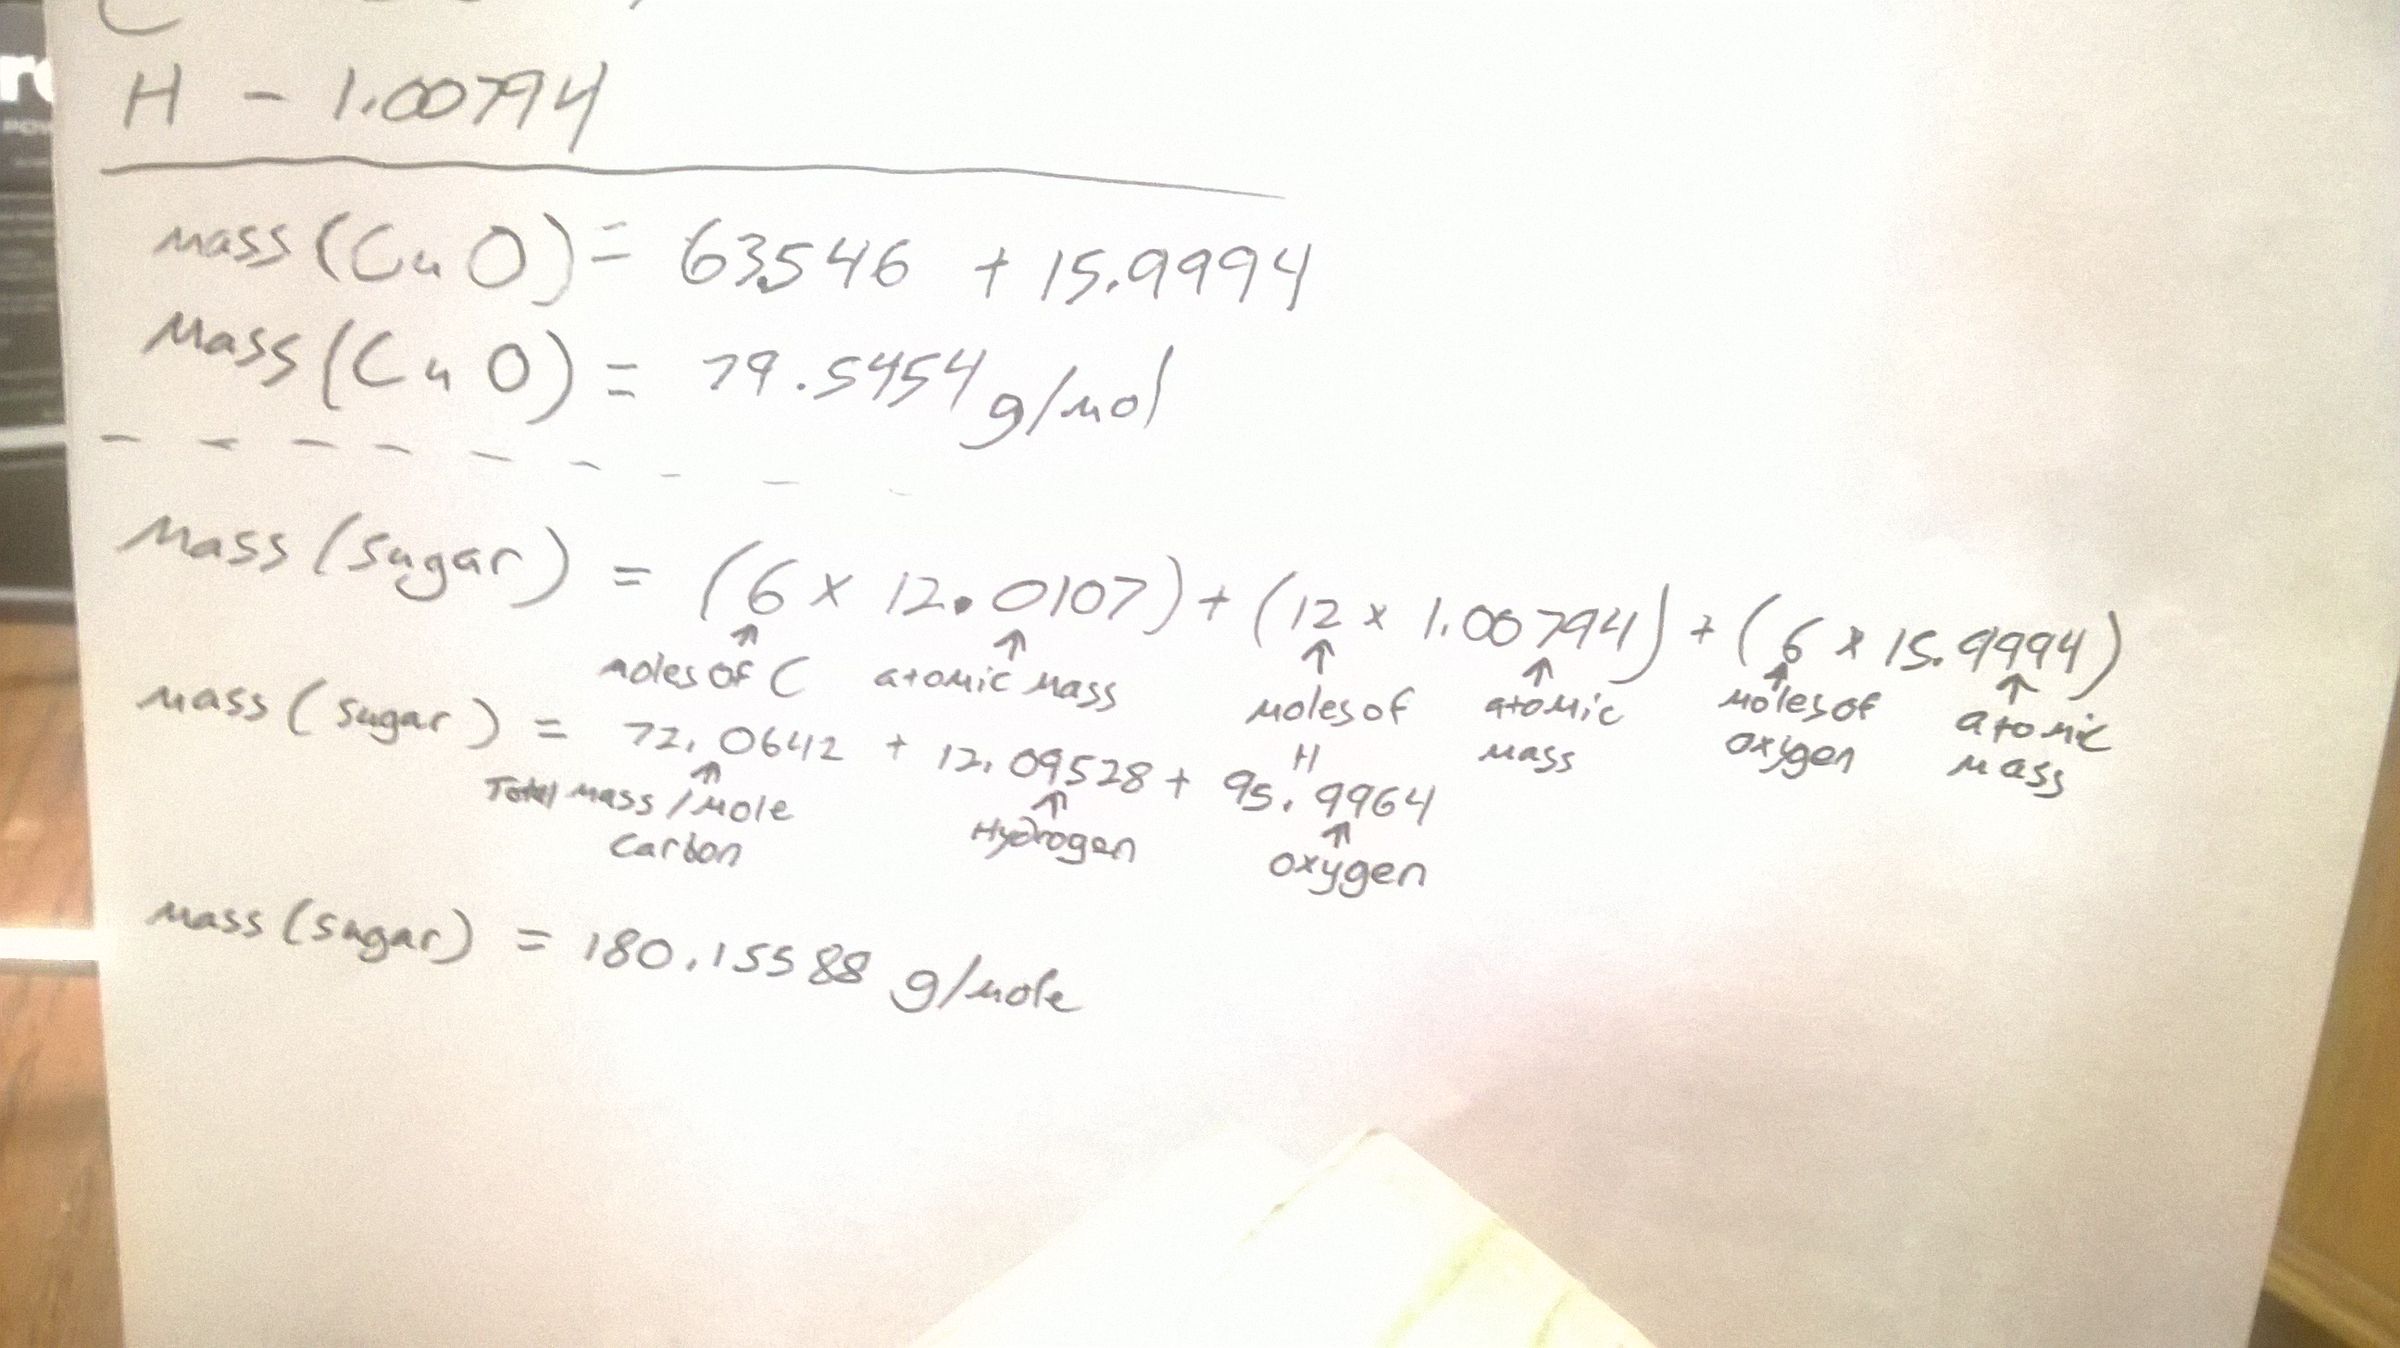 C
H - 1.00794
mass (CuO) = 63.546 + 15.9994
Mass (CuO) = 79.5454 g/mol
Mass (sugar) = (6 x 12.0107) + (12 x 1.00794) + (6 x 15.9994)
↑ ↑ ↑ ↑ ↑ ↑
moles of C atomic mass moles of H atomic mass moles of oxygen atomic mass
mass (sugar) = 72.0642 + 12.09528 + 95.9964
↑ ↑ ↑
Total mass/mole Carbon Hydrogen oxygen
mass (sugar) = 180.15588 g/mole